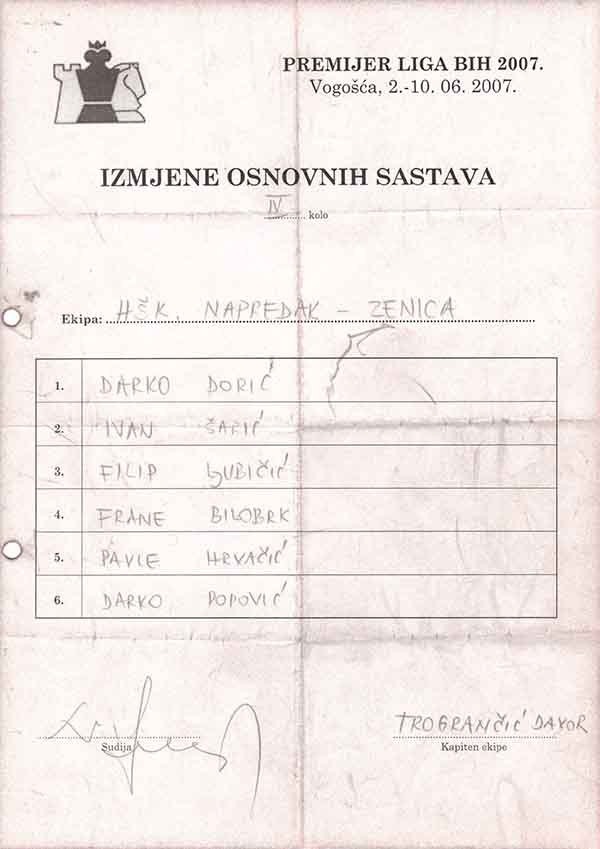 PREMIJER LIGA BIH 2007.
Vogošća, 2.-10. 06. 2007.
IZMJENE OSNOVNIH SASTAVA
IV kolo
Ekipa: HŠK. NAPREDAK - ZENICA
1. DARKO DORIĆ
2. IVAN ŠARIĆ
3. FILIP LJUBIČIĆ
4. FRANE BILOBRK
5. PAVLE HRVAČIĆ
6. DARKO POPOVIĆ
TROGRANČIĆ DAVOR
Sudija Kapiten ekipe